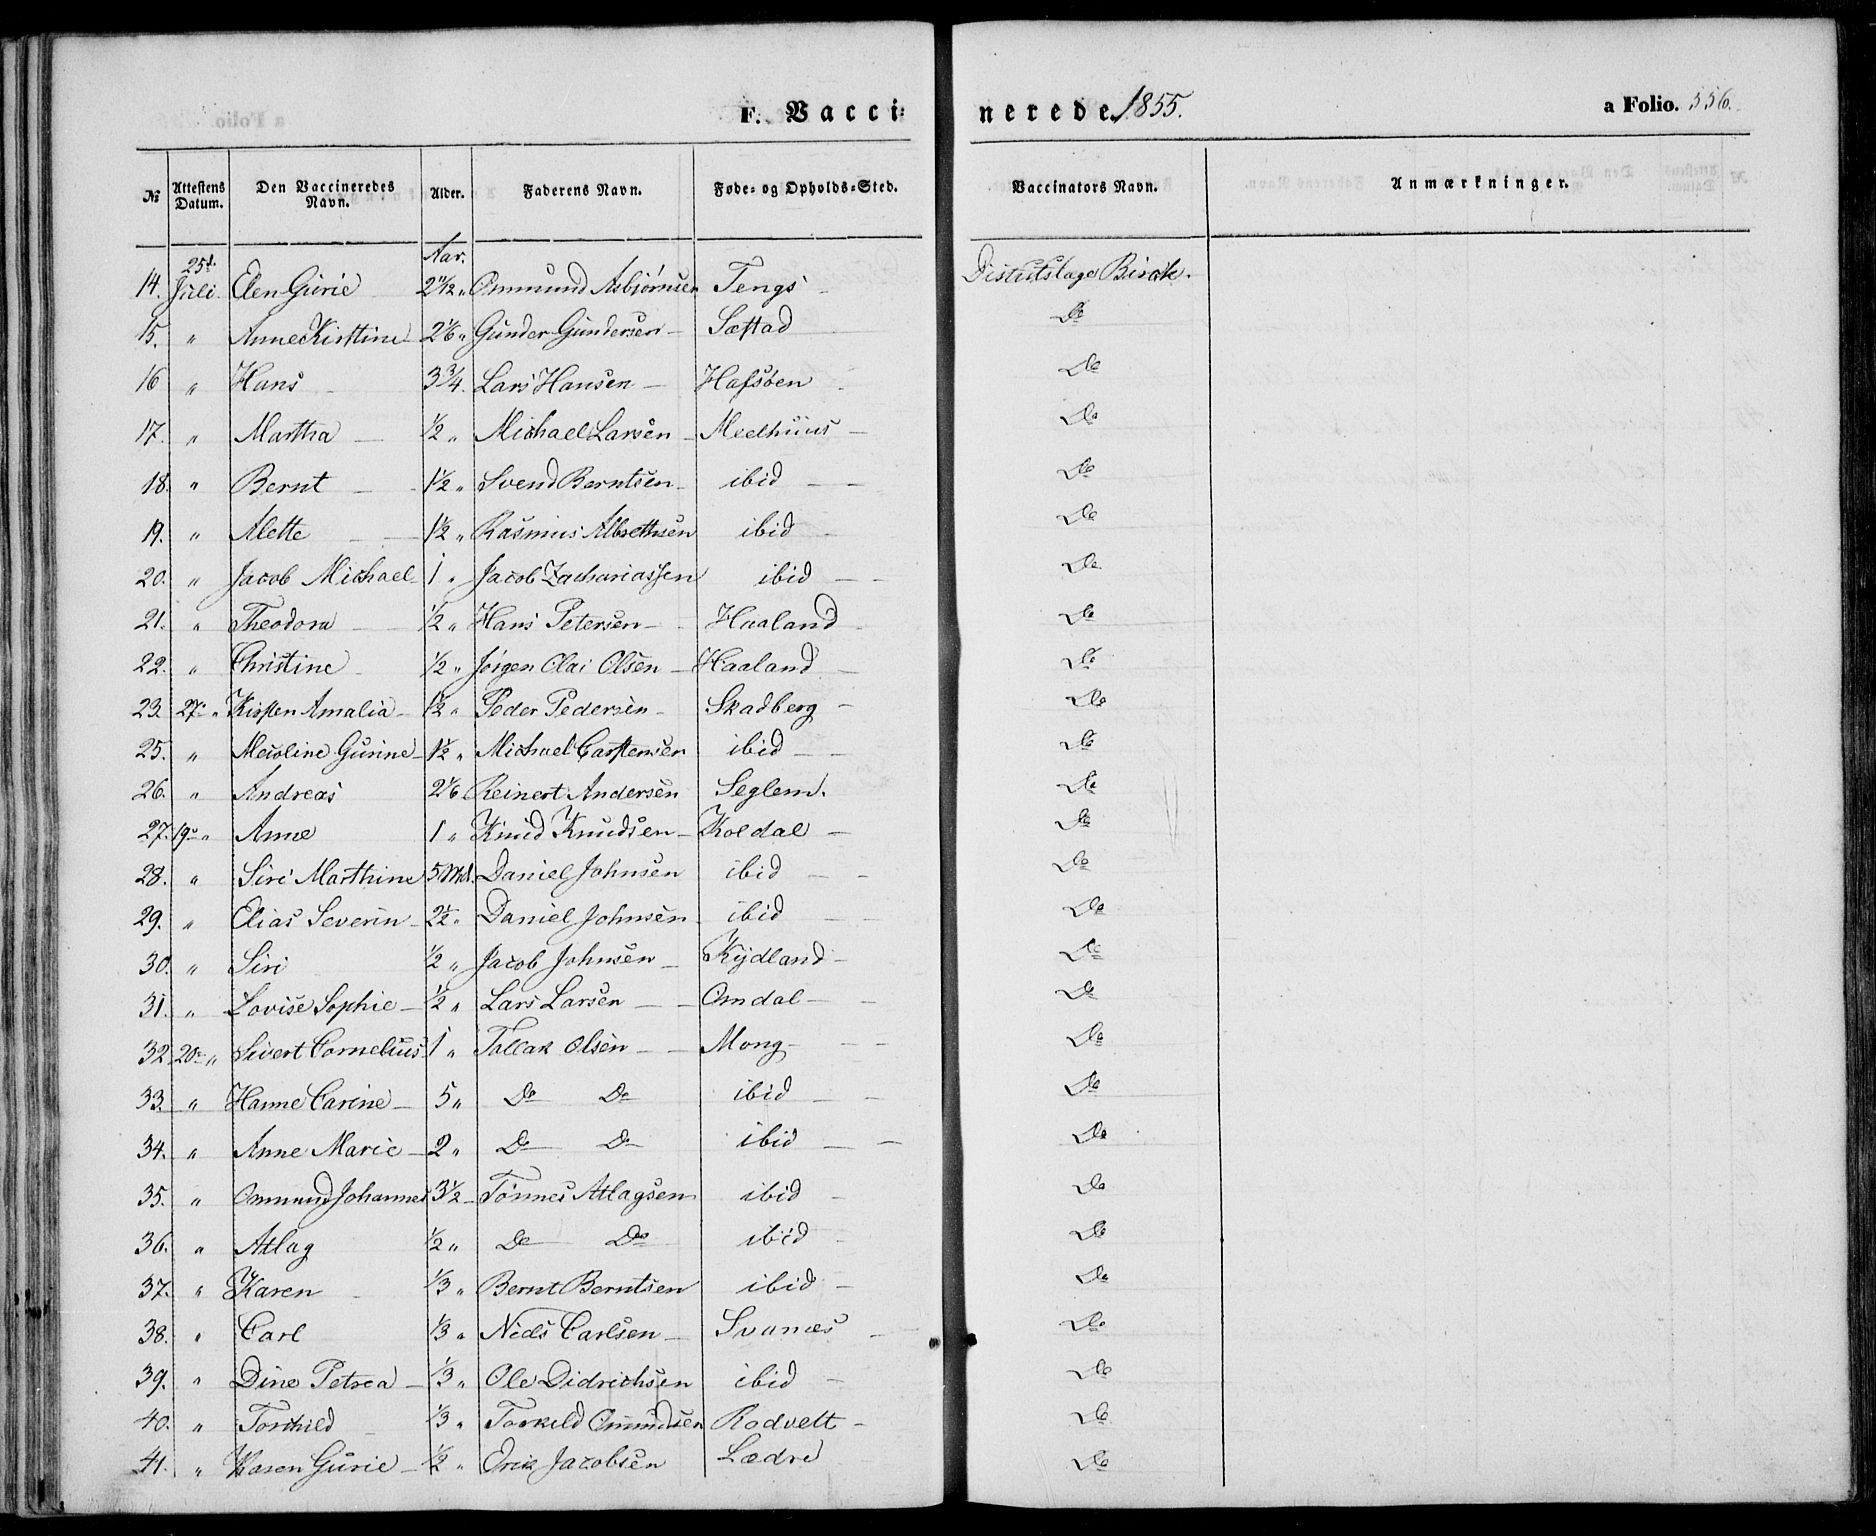 F. Vacci- nerede 1855. a Folio. 556.
№ Attestens Datum. Den Vaccineredes Navn. Alder. Faderens Navn. Føde- og Opholds-Sted. Vaccinators Navn. Anmærkninger.
Aar.
14. 25d. Juli Elen Gurie 2 1/12 " Ommund Asbjørnsen Tengs Distriktslæge Birch.
15. " Anne Kirstine 2 1/6 " Gunder Gundersen Sæstad Do
16 " Hans 3 3/4. Lars Hansen Hafsøen Do
17. " Martha 1/2 " Michael Larsen Meelhuus Do
18. " Bernt 1 1/2 " Svend Berntsen ibid Do
19. " Alette 1 1/2 " Rasmus Albrethsen ibid Do
20. " Jacob Michael 1 " Jacob Zachariassen ibid Do
21. " Theodora 1/2 " Hans Petersen Haaland Do
22. " Christine 1/2 " Jørgen Olai Olsen Haaland Do
23. 27 " Kirsten Amalia 1 1/2 " Peder Pedersen Skadberg Do
25. " Meoline Gurine 1 1/2 " Michael Carstensen ibid Do
26. " Andreas 2 1/6 Reinert Andersen Seglem. Do
27. 19 " Anne 1 " Knud Knudsen Koldal Do
28. " Siri Marthine 5 Md. Daniel Johnsen ibid Do
29. " Elias Severin 2 1/2 " Daniel Johnsen ibid Do
30. " Siri 1/2 " Jacob Johnsen Kydland Do
31. " Lovise Sophie 1/2 " Lars Larsen Omdal Do
32. 20 " Sivert Cornelius 1 " Tollak Olsen Mong Do
33. " Hanne Carine 5 " Do Do ibid Do
34. " Anne Marie 2 " Do Do ibid Do
35. " Ommund Johannes 3 1/2 Tönnes Atlagsen ibid Do
36. " Atlag 1/2 " Do Do ibid Do
37. " Karen 1/3 " Bernt Berntsen ibid Do
38. " Carl 1/3 " Niels Carlsen Svanæs Do
39. " Dine Petrea 1/3 " Ole Didrichsen ibid Do
40. " Torkild 1/3 " Torkild Ommundsen Rodvelt Do
41. " Karen Gurie 1/2 " Erik Jacobsen Lædre Do